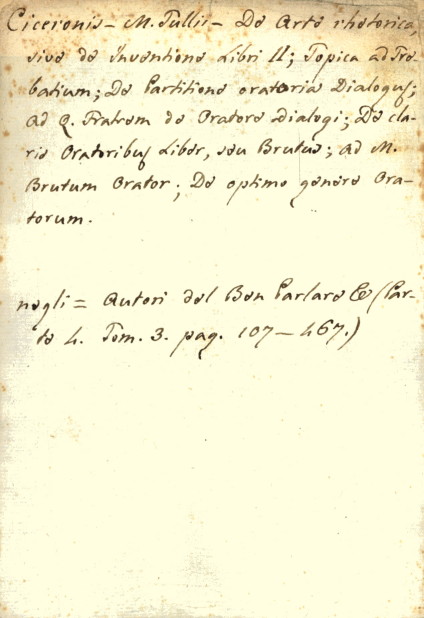 Ciceronis - M. Tullii - De Arte rhetorica,
sive de Inventione Libri II; Topica ad Tre
batium; De Partitione oratoria Dialogus;
Ad Q. Fratrem de Oratore Dialogi; De cla-
ris Oratoribus Liber, seu Brutus; ad M.
Brutum Orator; De optimo genere Ora-
torum.
negli = Autori del Ben Parlare &c (Par-
te 4. Tom. 3. pag. 107 - 467.)